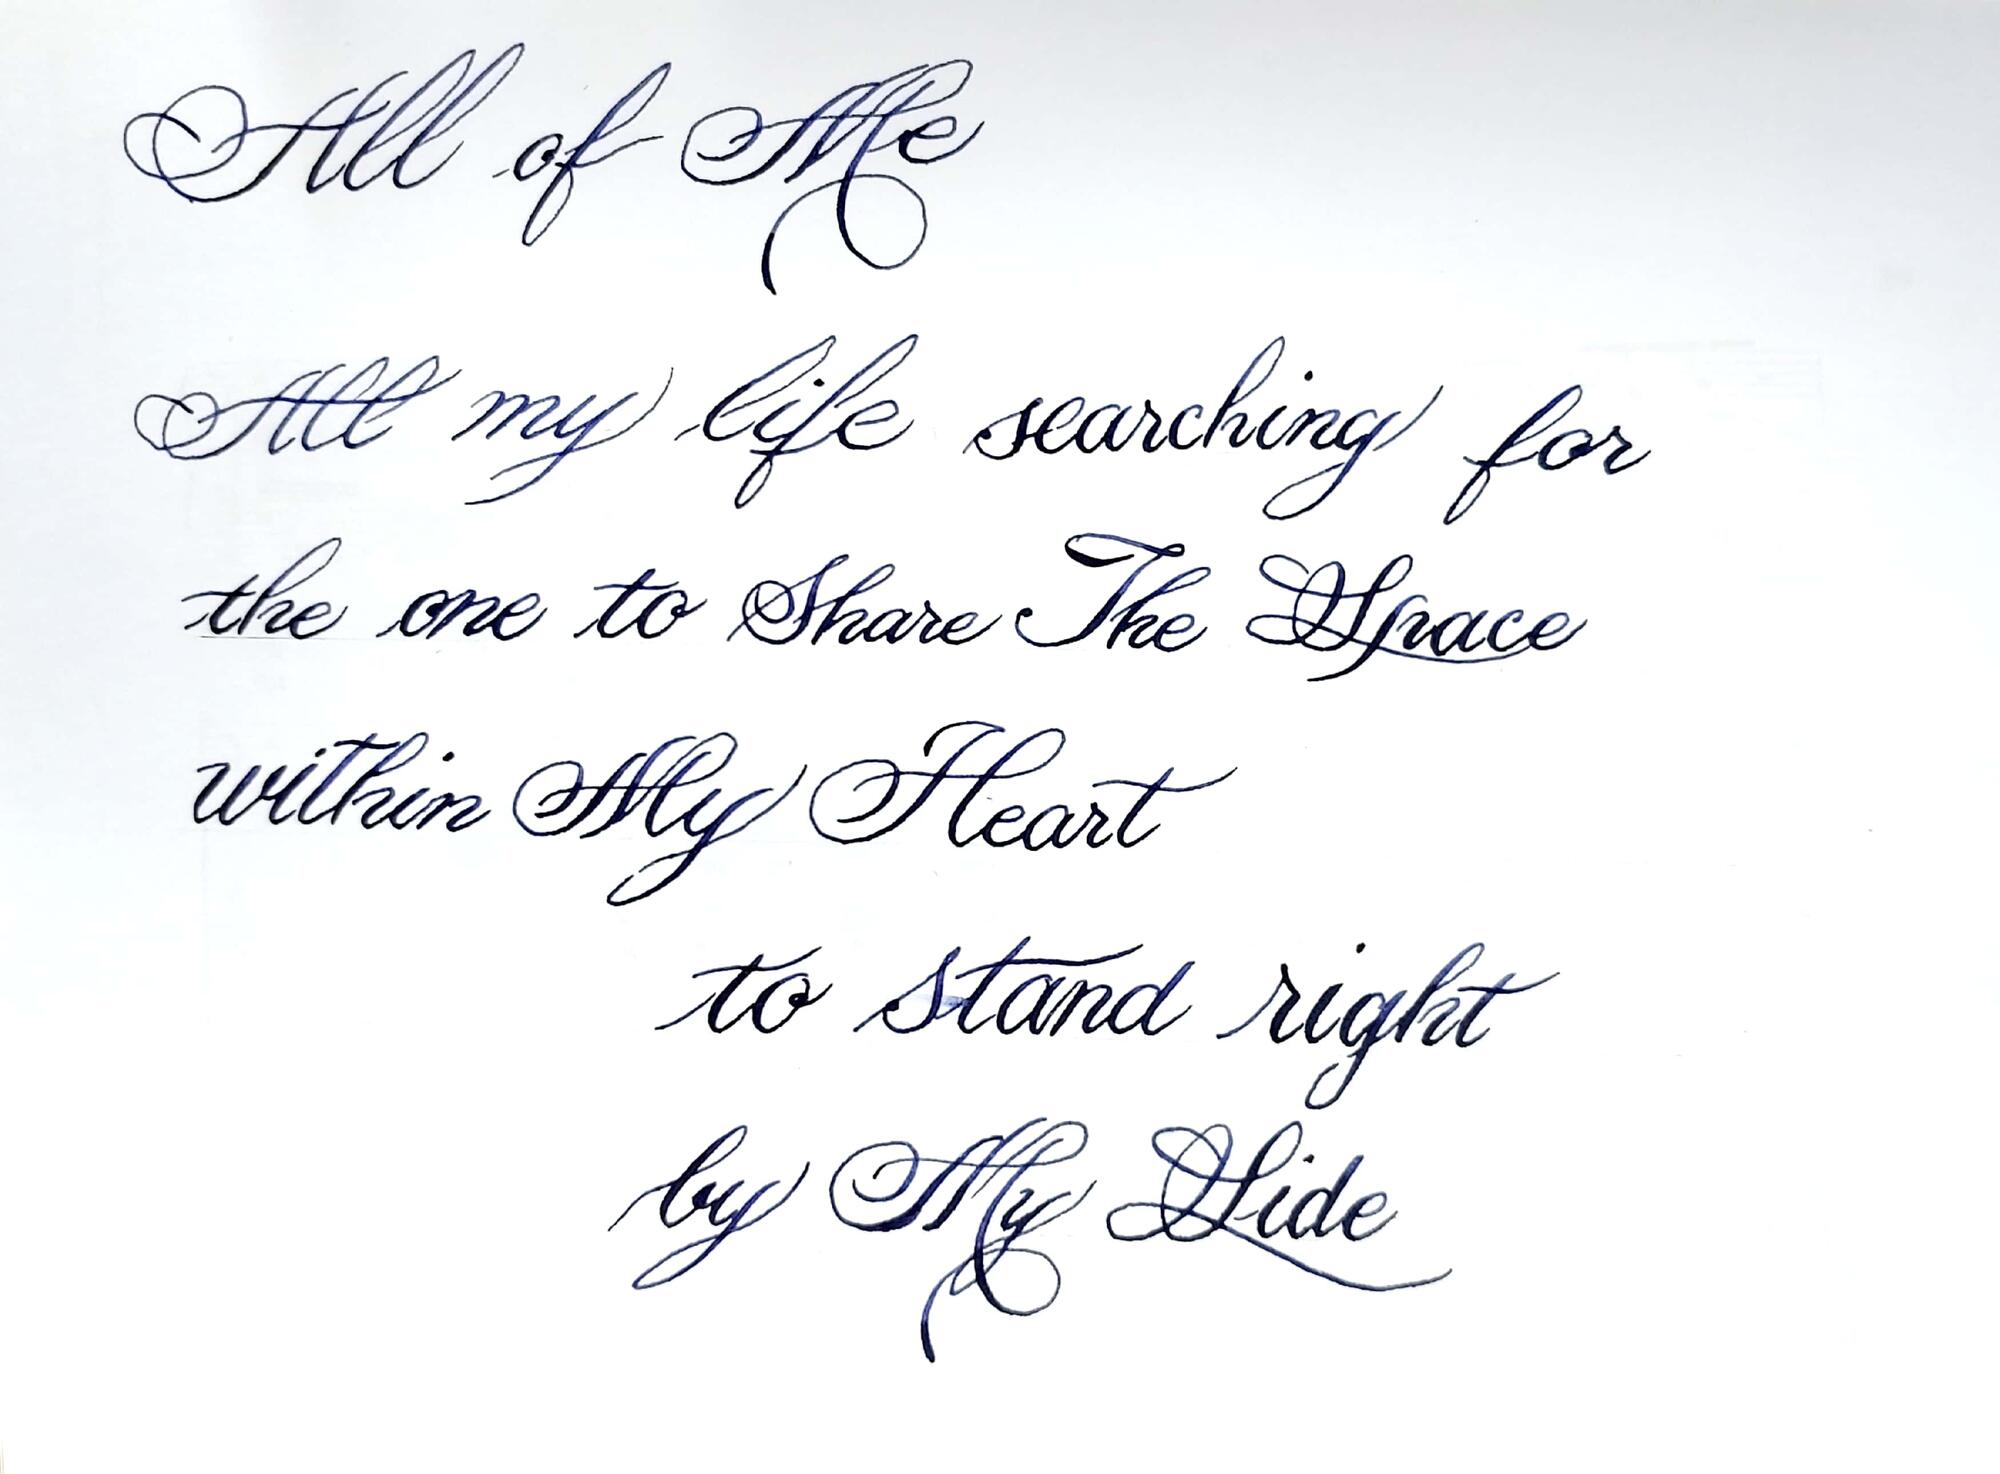 All of Me
All my life searching for
the one to Share The Space
within My Heart
to stand right
by My Side